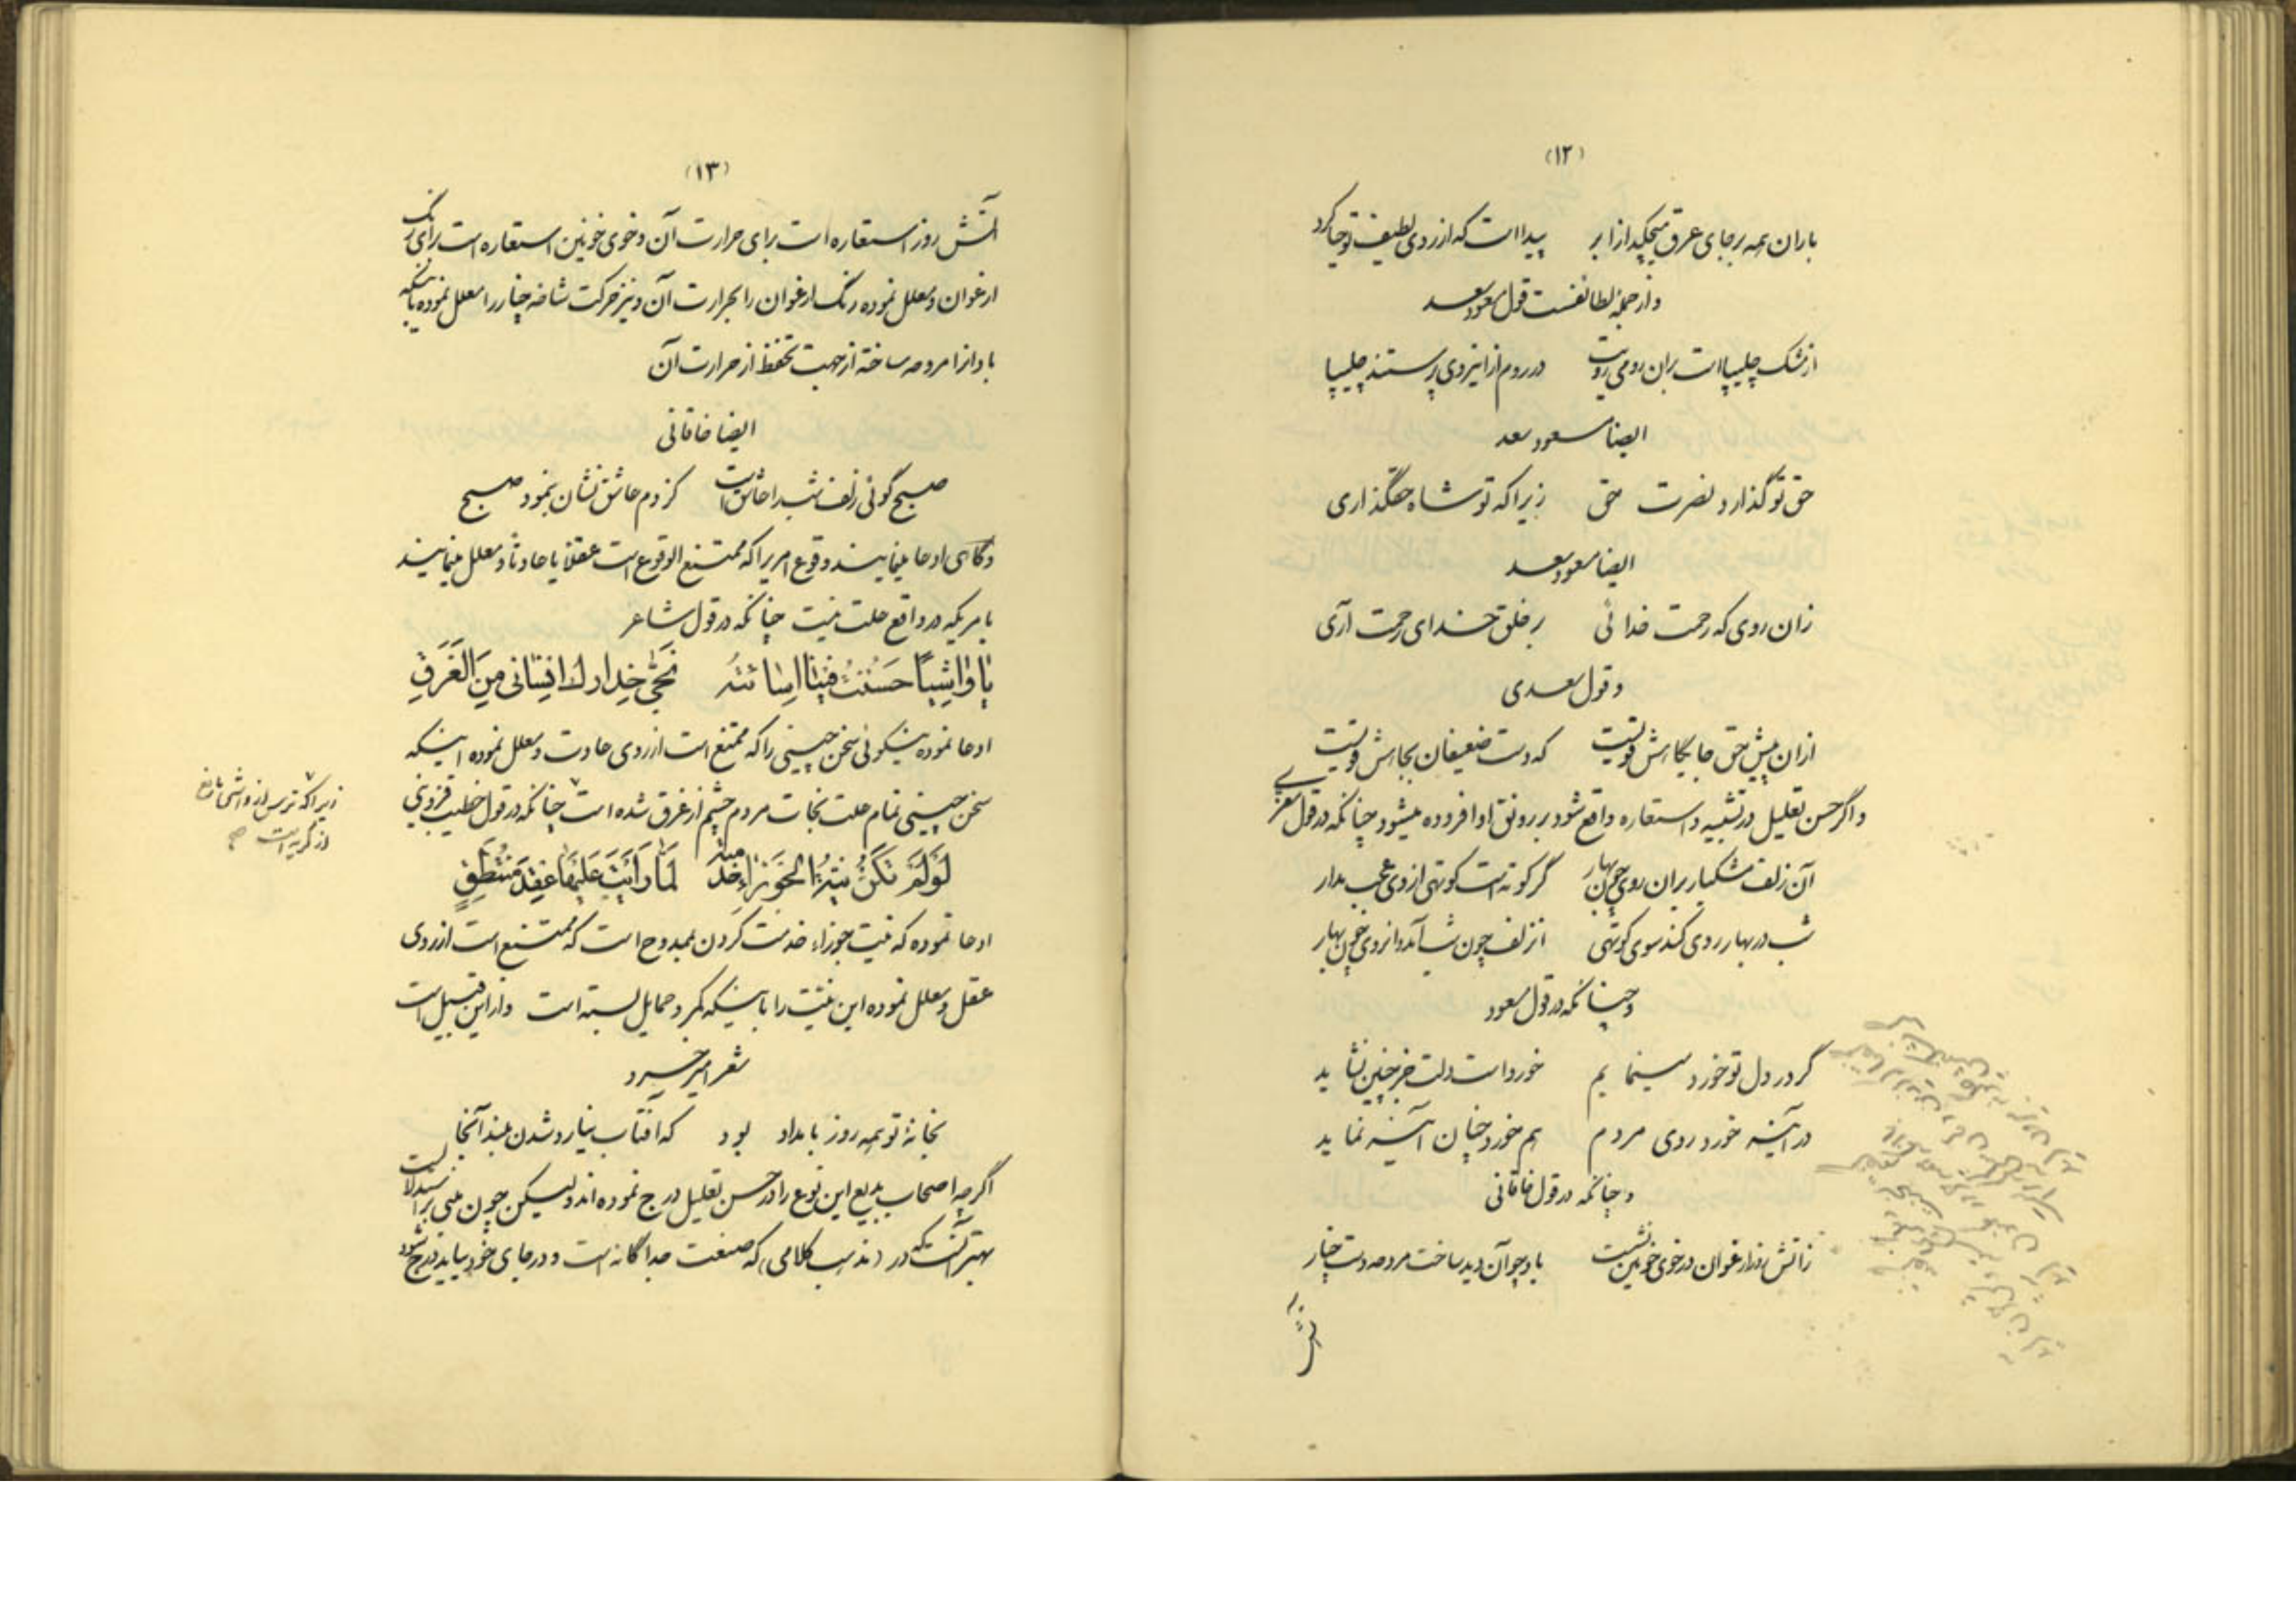 (۱۲)
باران همه بر جای عرق میچکید از ابر پیدا است که از روی لطیف تو حیا کرد
و از جمله لطائفست قول مسعود سعد
از مشک چلیپا است بران رومی رویت در روم از اینروی پرستند چلیپا
ایضا مسعود سعد
حق تو گذارد نصرت حق زیرا که تو شاه حقگذاری
ایضا مسعود سعد
زان روی که رحمت خدائی بر خلق خدای رحمت آری
و قول سعدی
ازان پیش حق جایگاهش قویست که دست ضعیفان بجاهش قویست
و اگر حسن تعلیل در تشبیه و استعاره واقع شود بر رونق او افزوده میشود چنانکه در قول معزی
آن زلف مشکبار بران روی چون بهار گر کوته است کوتهی از وی عجب مدار
شب در بهار روی کند سوی کوتهی آن زلف چون شب آمد و آن روی چون بهار
و چنانکه در قول مسعود
گر در دل تو خورد مینمایم خورد است دلت جز چنین نشاید
در آینه خورد روی مردم هم خورد چنان آینه نماید
و چنانکه در قول خاقانی
ز آتش روز ارغوان در خوی خونین نشست باد چو آن دید ساخت مروحه دست چنار
آتش
(۱۳)
آتش روز استعاره است برای حرارت آن و خوی خونین استعاره است برای رنگ
ارغوان و معلل نموده رنگ ارغوان را بحرارت آن و نیز حرکت شاخه چنار را معلل نموده باینکه
باد انرا مروحه ساخته از جهت تحفظ از حرارت آن
ایضا خاقانی
صبح گوئی زلف شب را عاشق است کز دم عاشق نشان بنمود صبح
و گاهی ادعا مینمایند وقوع امریرا که ممتنع الوقوع است عقلا یا عادتا و معلل مینمایند
بامریکه در واقع علت نیست چنانکه در قول شاعر
یا واشیا حسنت فینا اساءته نجی حذارك انسانی من الغرق
ادعا نموده نیکوئی سخن چینی را که ممتنع است از روی عادت و معلل نموده اینکه
سخن چینی تمام علت نجات مردم چشم از غرق شده است چنانکه در قول خطیب قزوینی
زیرا که ترس از واشی مانع
از گریه است صح
لو لم تكن نیة الجوزاء خدمته لما رأیت علیها عقد منتطق
ادعا نموده که نیت جوزاء خدمت کردن بممدوح است که ممتنع است از روی
عقل و معلل نموده این نیت را باینکه کمر و حمایل بسته است و از این قبیل است
شعر امیر خسرو
بخانه تو همه روز بامداد بود که آفتاب نیارد شدن بلند آنجا
اگر چه اصحاب بدیع این نوع را در حسن تعلیل درج نموده اند ولیکن چون مبنی بر استدلالست
بهتر آنستکه در (مذهب کلامی) که صنعت جداگانه است و در جای خود بیاید درج شود